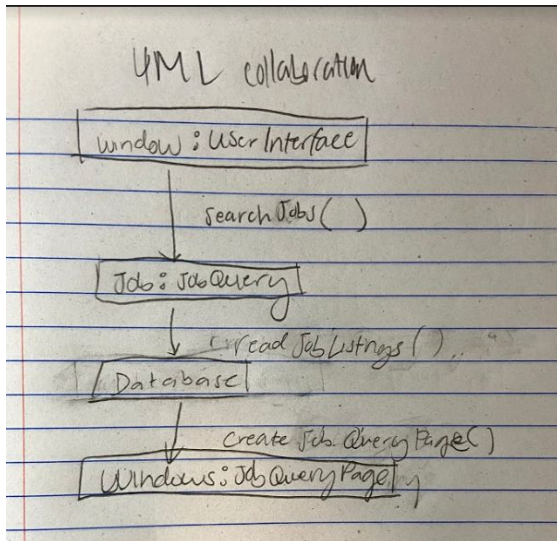 UML collaboration
window : UserInterface
searchJobs( )
Job : JobQuery
read JobListings( )
Database
create Job QueryPage( )
Windows : JobQueryPage